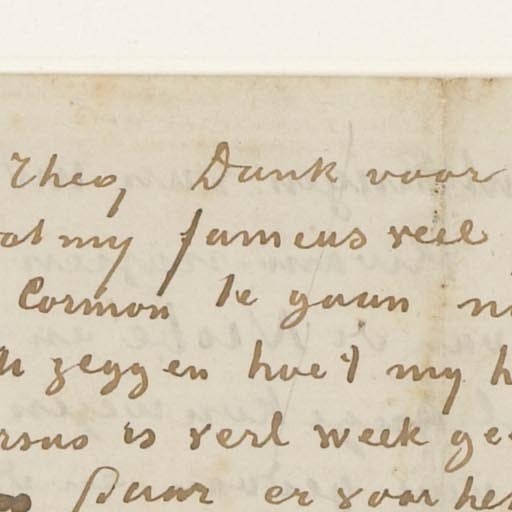 Theo, Dank voor
at my fameus veel
Cormon te gaan
zeggen hoe 't my h
rsus is verl week ge
Daar er voor het